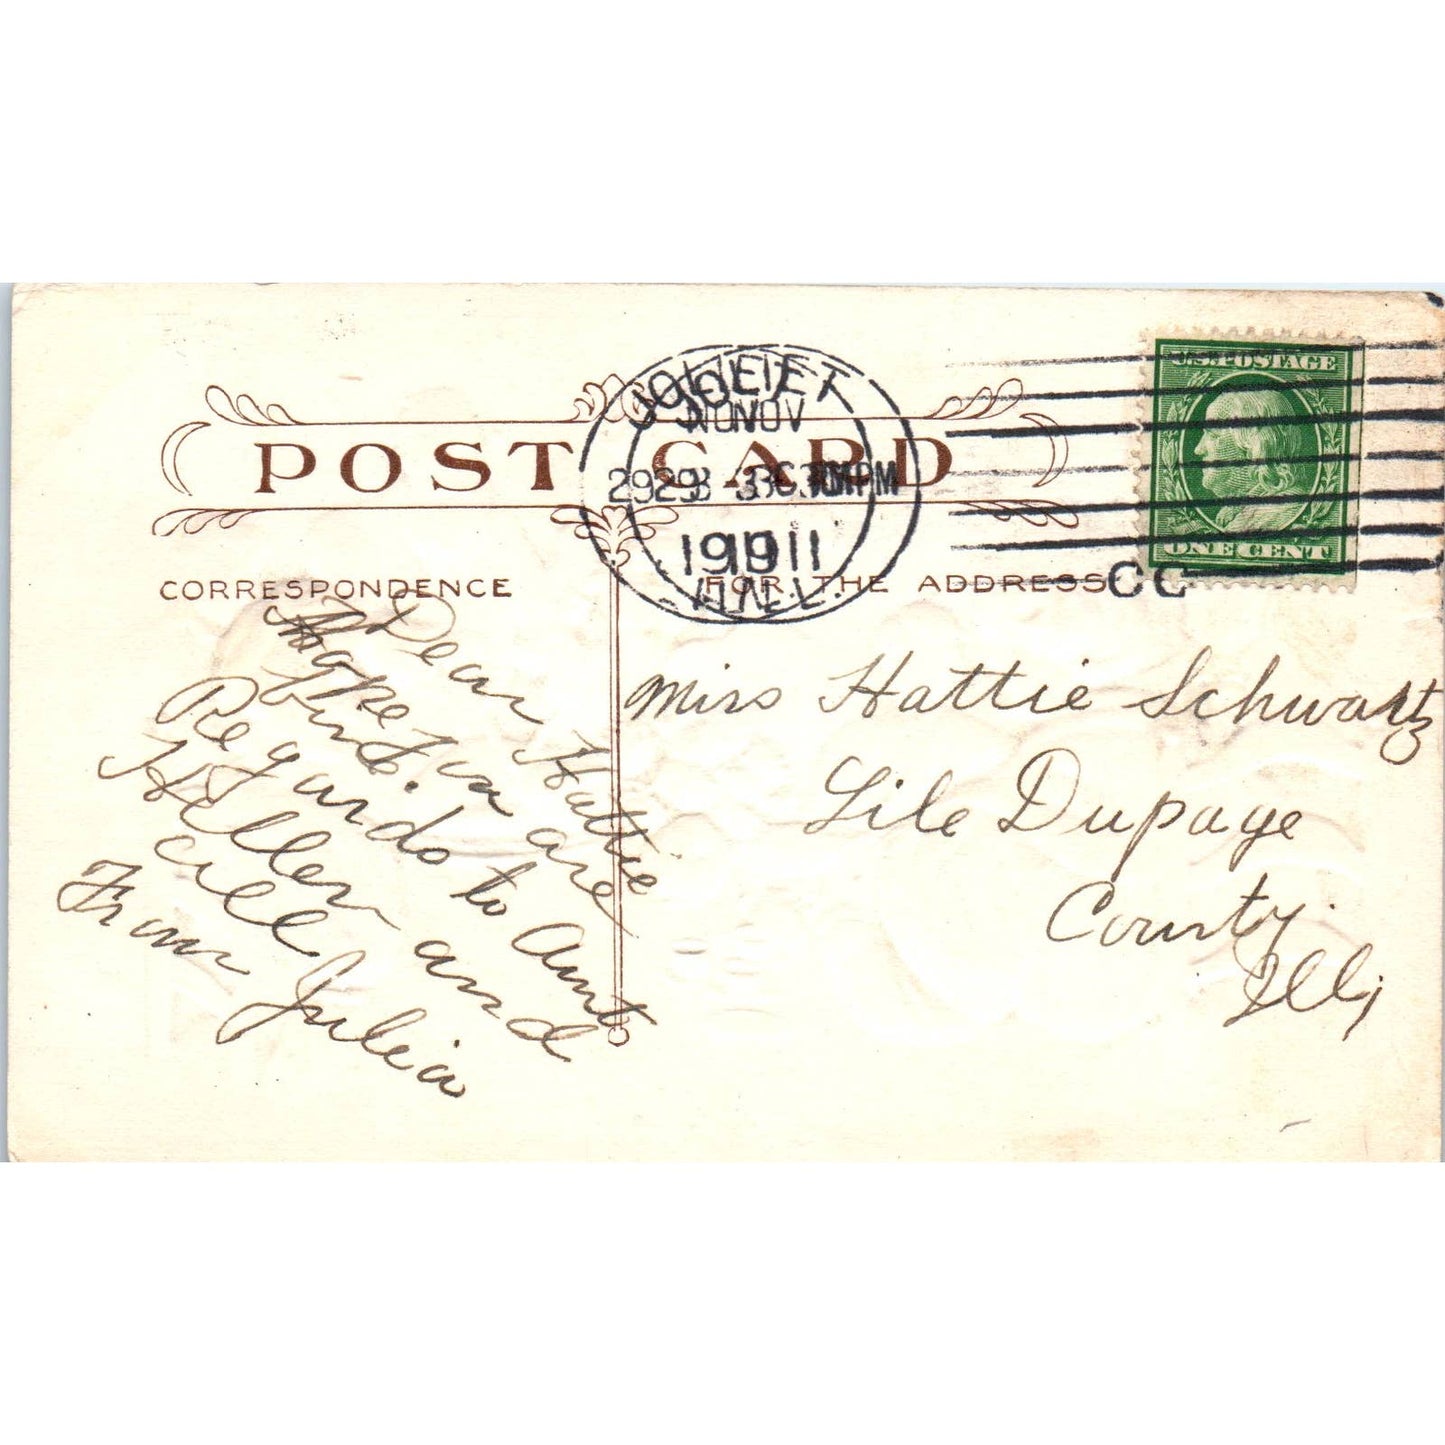 POST CARD
JOLIET
NOV
29
3 30 PM
1911
ILL.
U.S. POSTAGE
ONE CENT
CORRESPONDENCE
FOR THE ADDRESS
Dear Hattie
Hope you are
Regards to Aunt
Hellen and
all
From Julia
Miss Hattie Schwartz
Lile Dupage
County.
Ill;